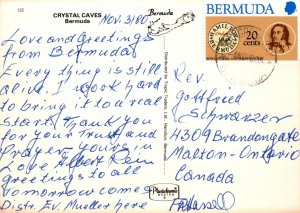 132
CRYSTAL CAVES
Bermuda
Nov. 3/80
Love and Greetings
from Bermuda
Every thing is still
alive. I work hard
to bring it to a real
start. Thank you
for your Trust and
Prayer. yours in
Love Albert Rein
greetings to all
Tomorrow comes
Distr. Ev. Mueller here
Bermuda
Plastichrome
BERMUDA
20
cents
Rev.
Gottfried
Schwarzer
4309 Brandongate
Malton - Ontario
Canada